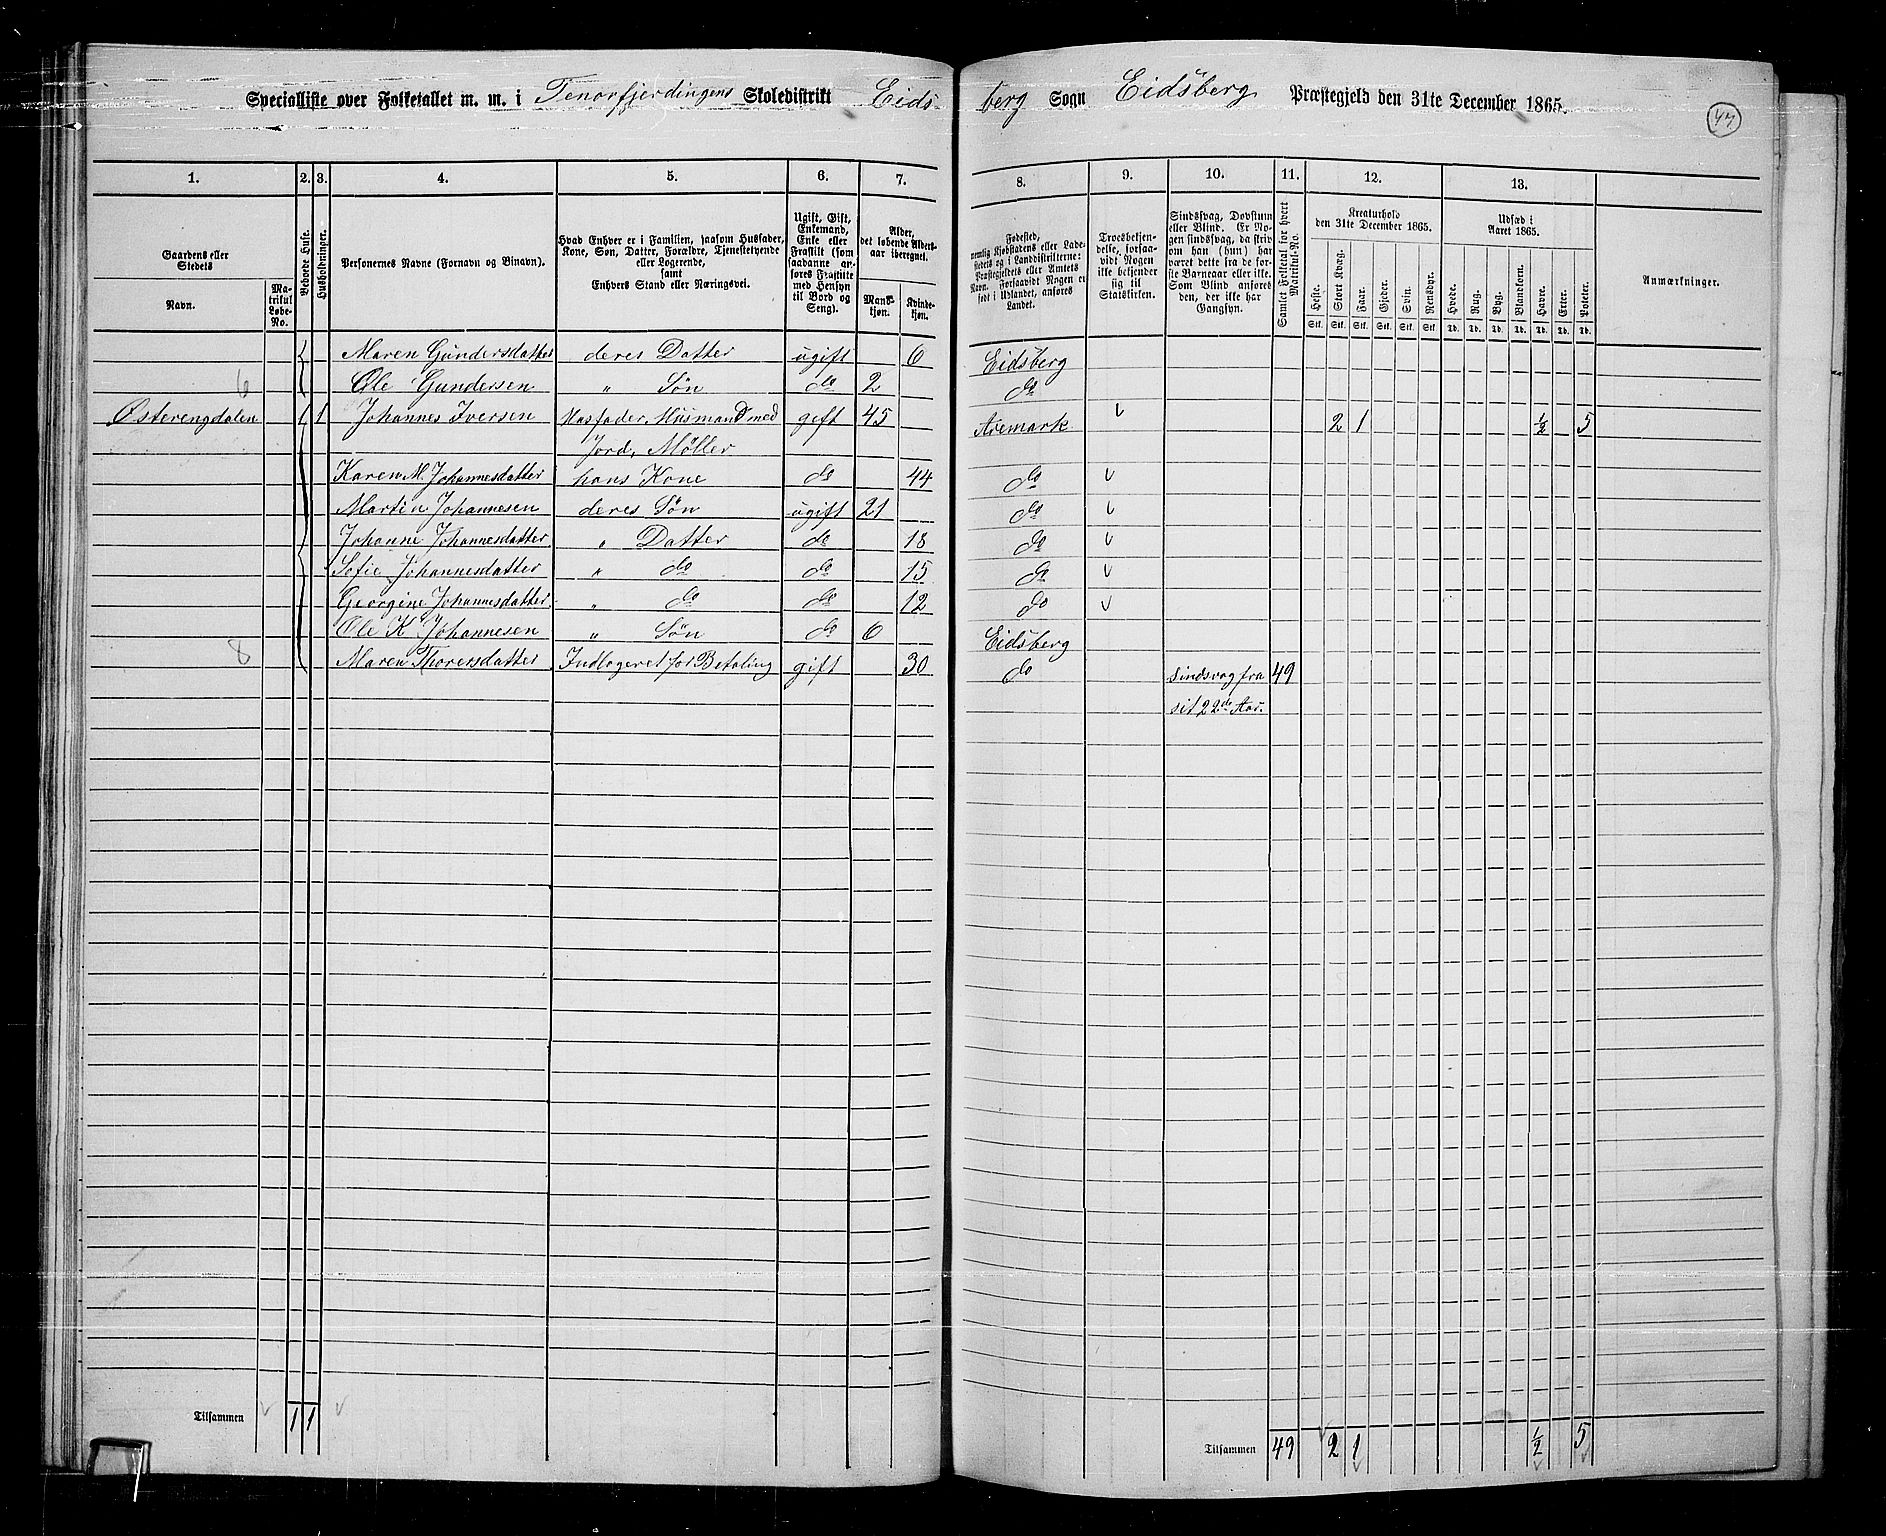 Specialliste over Folketallet m. m. i Tenorfjerdingens Skoledistrikt Eidsberg Sogn Eidsberg Præstegjeld den 31te December 1865.
47
1. 2. 3. 4. 5. 6. 7. 8. 9. 10. 11. 12. 13.
Gaardens eller Stedets
Navn.
Matrikul Løbe-No.
Beboede Huse.
Husholdninger.
Personernes Navne (Fornavn og Binavn).
Hvad Enhver er i Familien, saasom Husfader, Kone, Søn, Datter, Forældre, Tjenestetyende eller Logerende, samt Enhvers Stand eller Næringsvei.
Ugift, Gift, Enkemand, Enke eller Fraskilt (som saadanne anføres Fraskilte med Hensyn til Bord og Seng).
Alder, det løbende Aldersaar iberegnet.
Mandkjøn.
Kvindekjøn.
Fødested, nemlig Kjøbstadens eller Ladestedets og i Landdistrikterne: Præstegjeldets eller Amtets Navn. Forsaavidt Nogen er født i Udlandet, anføres Landet.
Troesbekjendelse, forsaavidt Nogen ikke bekjender sig til Statskirken.
Sindssvag, Døvstum eller Blind. Er Nogen sindssvag, da skriv om han (hun) har været dette fra de første Barneaar eller ikke. Som Blind anføres den, der ikke har Gangsyn.
Samlet Folketal for hvert Matrikul-No.
Kreaturhold den 31te December 1865.
Heste. Stort Kvæg. Faar. Gjeder. Svin. Rensdyr.
Stk. Stk. Stk. Stk. Stk. Stk.
Udsæd i Aaret 1865.
Hvede. Rug. Byg. Blandkorn. Havre. Erter. Poteter.
Td. Td. Td. Td. Td. Td. Td.
Anmærkninger.
Maren Gundersdatter deres Datter ugift 6 Eidsberg
6 Ole Gundersen " Søn do 2 do
Østerengdalen 1 1 Johannes Iversen Husfader, Husmand med gift 45 Aremark 2 1 ½ 5
Jord, Møller
Karen M. Johannesdatter hans Kone do 44 do
Martin Johannesen deres Søn ugift 21 do
Johanne Johannesdatter " Datter do 18 do
Sofie Johannesdatter " do do 15 do
Georgine Johannesdatter " do do 12 do
Ole K Johannesen " Søn do 6 Eidsberg
8 Maren Thorersdatter Indlogeret for Betaling gift 30 do sindsvag fra 49
sit 22de Aar.
Tilsammen 1 1
Tilsammen 49 2 1 ½ 5